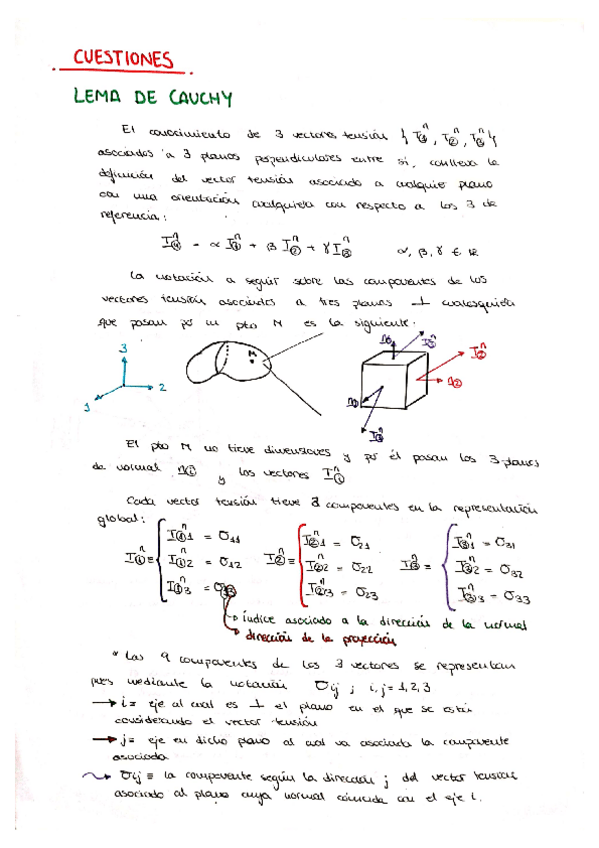 CUESTIONES
LEMA DE CAUCHY
El conocimiento de 3 vectores tensión { T①ⁿ, T②ⁿ, T③ⁿ }
asociados a 3 planos perpendiculares entre si, conlleva la
definición del vector tensión asociado a cualquier plano
con una orientación cualquiera con respecto a los 3 de
referencia:
= α T①ⁿ + β T②ⁿ + γ T③ⁿ α, β, γ ∈ ℝ
La notación a seguir sobre las componentes de los
vectores tensión asociados a tres planos ⊥ cualesquiera
que pasan por un pto M es la siguiente:
3
2
1
M
n③ T③ⁿ
T②ⁿ
n②
n①
T①ⁿ
El pto M no tiene dimensiones y por él pasan los 3 planos
de normal nⓘ y los vectores Tⓘⁿ
Cada vector tensión tiene 3 componentes en la representación
global:
T①ⁿ1 = σ11 T②ⁿ1 = σ21 T③ⁿ1 = σ31
T①ⁿ ≡ T①ⁿ2 = σ12 T②ⁿ ≡ T②ⁿ2 = σ22 T③ⁿ ≡ T③ⁿ2 = σ32
T①ⁿ3 = σ13 T②ⁿ3 = σ23 T③ⁿ3 = σ33
índice asociado a la dirección de la normal
dirección de la proyección
* Las 9 componentes de los 3 vectores se representan
pues mediante la notación σij ; i, j = 1, 2, 3
→ i ≡ eje al cual es ⊥ el plano en el que se está
considerando el vector tensión
→ j ≡ eje en dicho plano al cual va asociada la componente
asociada
σij ≡ la componente según la dirección j del vector tensión
asociado al plano cuya normal coincide con el eje i.